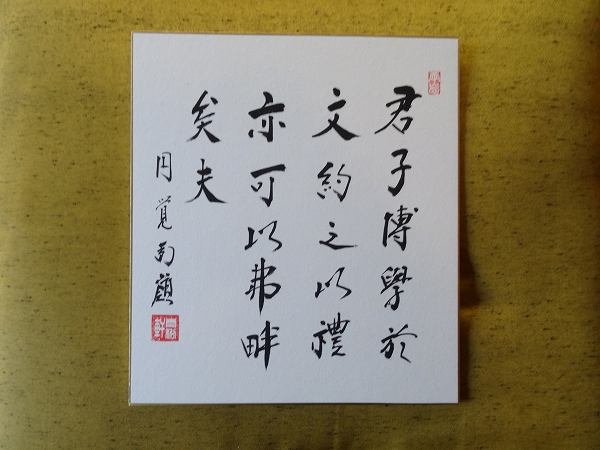 君子博學於
文約之以禮
亦可以弗畔
矣夫
円覚南嶺